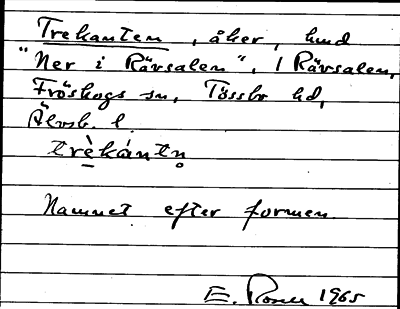 Trekanten, åker, hmd
"Ner i Rävsalen", 1 Rävsalen,
Fröskogs sn, Tössbo hd,
Älvsb. l.
trè̱kántn̥
Namnet efter formen.
E. 1965